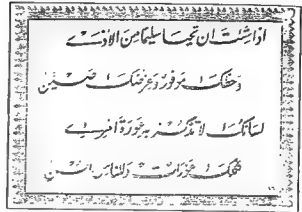 اذا شئت ان تحيا سليما من الاذى
وحظك موفور وعرضك صين
لسانك لا تذكر به عورة امرئ
فكلك عورات وللناس السن